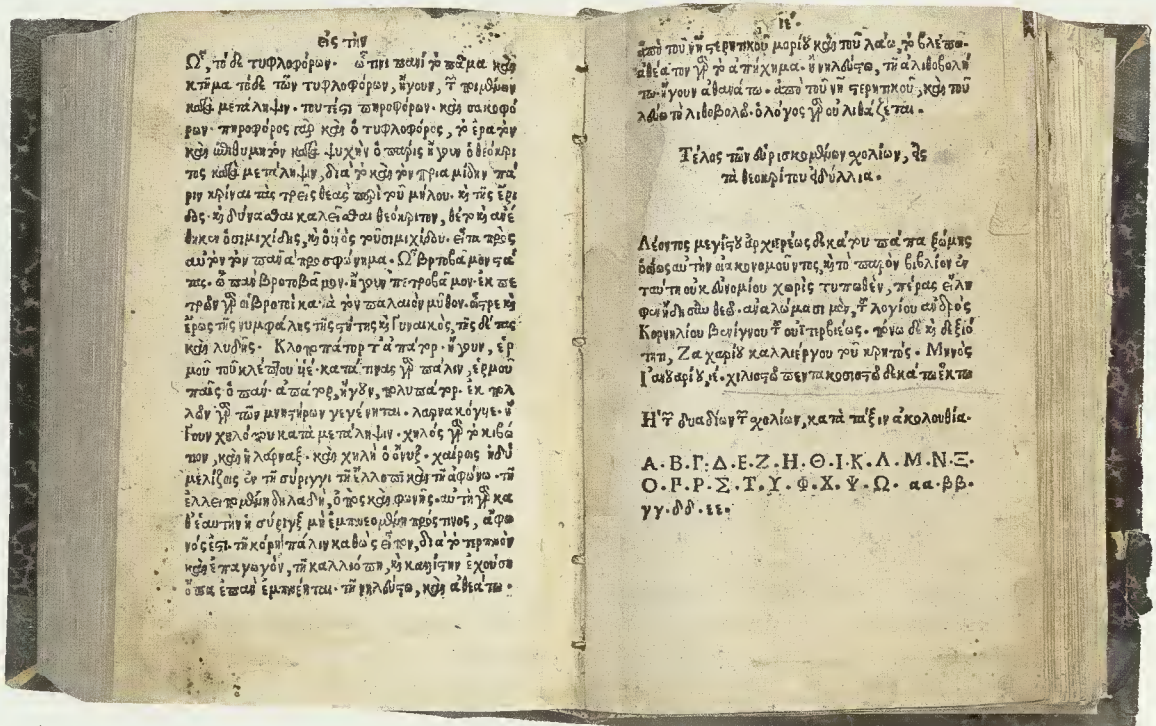 εἰς τὴν
Ὦ, τόδε τυφλοφόρων. ὧτινι πανὶ τὸ πᾶμα καὶ
κτῆμα τόδε τῶν τυφλοφόρων, ἤγουν,
κατὰ μετάληψιν. τουτέστι πηροφόρων. καὶ σακοφό
ρων. πηροφόρος γὰρ καὶ ὁ τυφλοφόρος, τὸ ἐρατὸν
καὶ ἐπιθυμητὸν κατὰ ψυχὴν ὁ πάρις ἤγουν ὁ θεόκρι
τος κατὰ μετάληψιν, διὰ τὸ καὶ τὸν πριαμίδην πά
ριν κρίναι τὰς τρεῖς θεὰς περὶ τοῦ μήλου. καὶ τῆς ἔρι
δος. καὶ δύνασθαι καλεῖσθαι θεόκριτον, θέτο καὶ ἀνέ
θηκεν ὁ σιμιχίδης, καὶ ὁ υἱὸς τοῦ σιμιχίδου. εἶτα πρὸς
αὐτὸν τὸν πᾶνα προσφώνημα. Ὦ βροτοβάμον
πας. ὦ πὰν βροτοβᾶμον. ἤγουν πετροβᾶμον. ἐκ πε
τρῶν γὰρ οἱ βροτοὶ κατὰ τὸν παλαιὸν μῦθον. στήτας καὶ
ἔρως τῆς νυμφάλης τῆς στήτης καὶ γυναικὸς, τῆς δέσπας
καὶ λυδῆς. Κλοποπάτορ τ' ἀπάτορ. ἤγουν, ἑρ
μοῦ τοῦ κλέπτου υἱέ. κατά τινας γὰρ πάλιν, ἑρμοῦ
παῖς ὁ πάν. ἀπάτορ, ἤγουν, πολυπάτορ. ἐκ πολ
λῶν γὰρ τῶν μνηστήρων γεγένηται. λαρνακόγυιε. ἤ
γουν χηλόπου κατὰ μετάληψιν. χηλὸς γὰρ τὸ κιβώ
τιον, καὶ ἡ λάρναξ. καὶ χηλὴ ὁ ὄνυξ. χαίροις ἡδὺ
μελίζοις ἐν τῇ σύριγγι τῇ ἔλλοπι καὶ τῇ ἀφώνῳ. τῇ
ἐλλειπομένῃ δηλαδὴ, ὀπὸς καὶ φωνῆς. αὐτὴ γὰρ κα
θ' ἑαυτὴν ἡ σύριγξ μὴ ἐμπνεομένη πρός τινος, ἄφω
νός ἐστι. τῇ κόρῃ πάλιν καθὼς εἶπον, διὰ τὸ τερπνὸν
καὶ ἐπαγωγὸν, τῇ καλλιόπῃ, καὶ καλὴν ἐχούσῃ
ὄπα ἐπὰν ἐμπνέηται. τῇ νηλεύστῳ, καὶ ἀθεάτῳ.
ιέ.
ἀπὸ τοῦ νη στερητικοῦ μορίου καὶ τοῦ λάω, τὸ βλέπω.
ἀθέατον γὰρ τὸ ἀπήχημα. ἢ νηλεύστῳ, τῇ ἀλιθοβολή
τῳ. ἤγουν ἀθανάτῳ. ἀπὸ τοῦ νη στερητικοῦ, καὶ τοῦ
λεύω τὸ λιθοβολῶ. ὁ λόγος γὰρ οὐ λιθάζεται.
Τέλος τῶν εὑρισκομένων σχολίων, εἰς
τὰ θεοκρίτου εἰδύλλια.
Λέοντος μεγίστου ἀρχιερέως δεκάτου πάπα ῥώμης
ὁσίως αὐτὴν οἰκονομοῦντος, καὶ τὸ παρὸν βιβλίον ἐν
ταύτῃ οὐκ εὐνομίου χωρὶς τυπωθὲν, πέρας εἴλη
φεν ἤδη σὺν θεῷ. ἀναλώμασι μὲν, τοῦ λογίου ἀνδρὸς
Κορνηλίου Βενίγνου τοῦ οὐϊτερβιέως. πόνῳ δὲ καὶ δεξιό
τητι, Ζαχαρίου καλλιέργου τοῦ κρητός. Μηνὸς
Ἰανουαρίου, ιέ. χιλιοστῷ πεντακοσιοστῷ δεκάτῳ ἕκτῳ
Ἡ τῶν δυαδίων τῶν σχολίων, κατὰ τάξιν ἀκολουθία.
Α.Β.Γ.Δ.Ε.Ζ.Η.Θ.Ι.Κ.Λ.Μ.Ν.Ξ.
Ο.Π.Ρ.Σ.Τ.Υ.Φ.Χ.Ψ.Ω. αα.ββ.
γγ.δδ.εε.